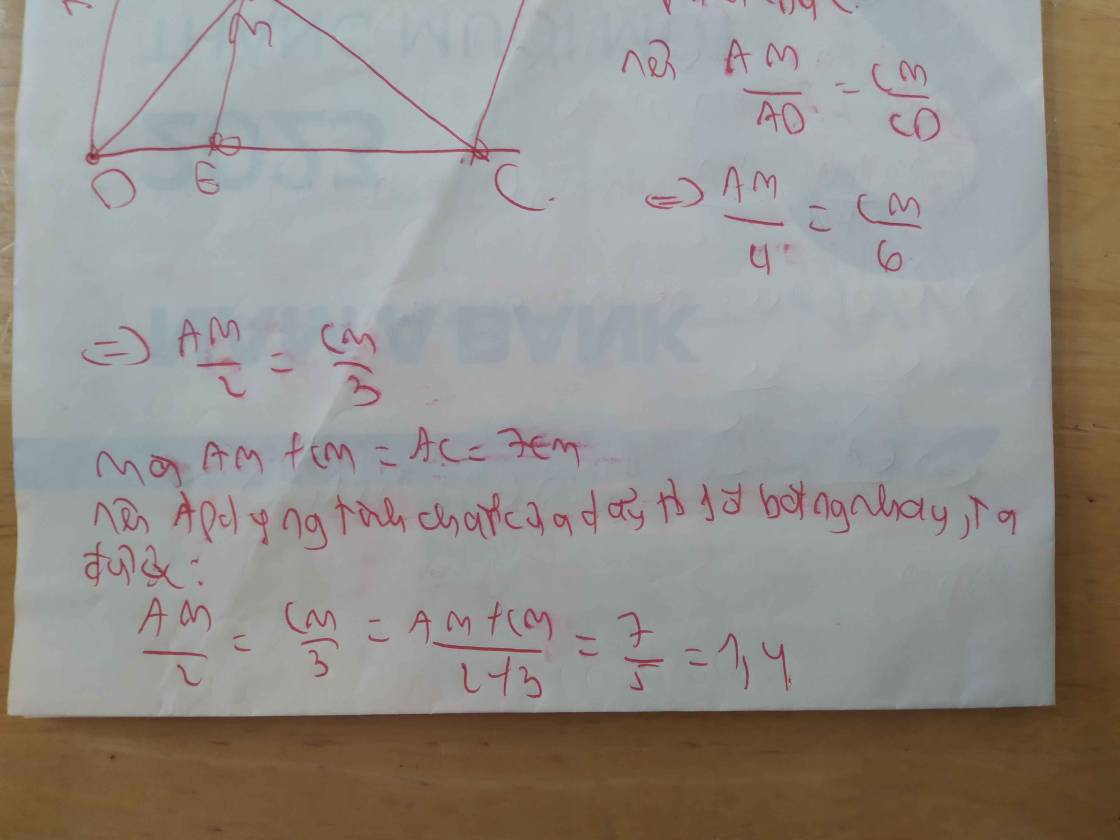 M
D E C
nên AM/AD = CM/CD
<=> AM/4 = CM/6
=> AM/2 = CM/3
Mà AM + CM = AC = 7cm
nên Áp dụng tính chất của dãy tỉ số bằng nhau, ta
được:
AM/2 = CM/3 = AM + CM/2+3 = 7/5 = 1,4
2023
BANK